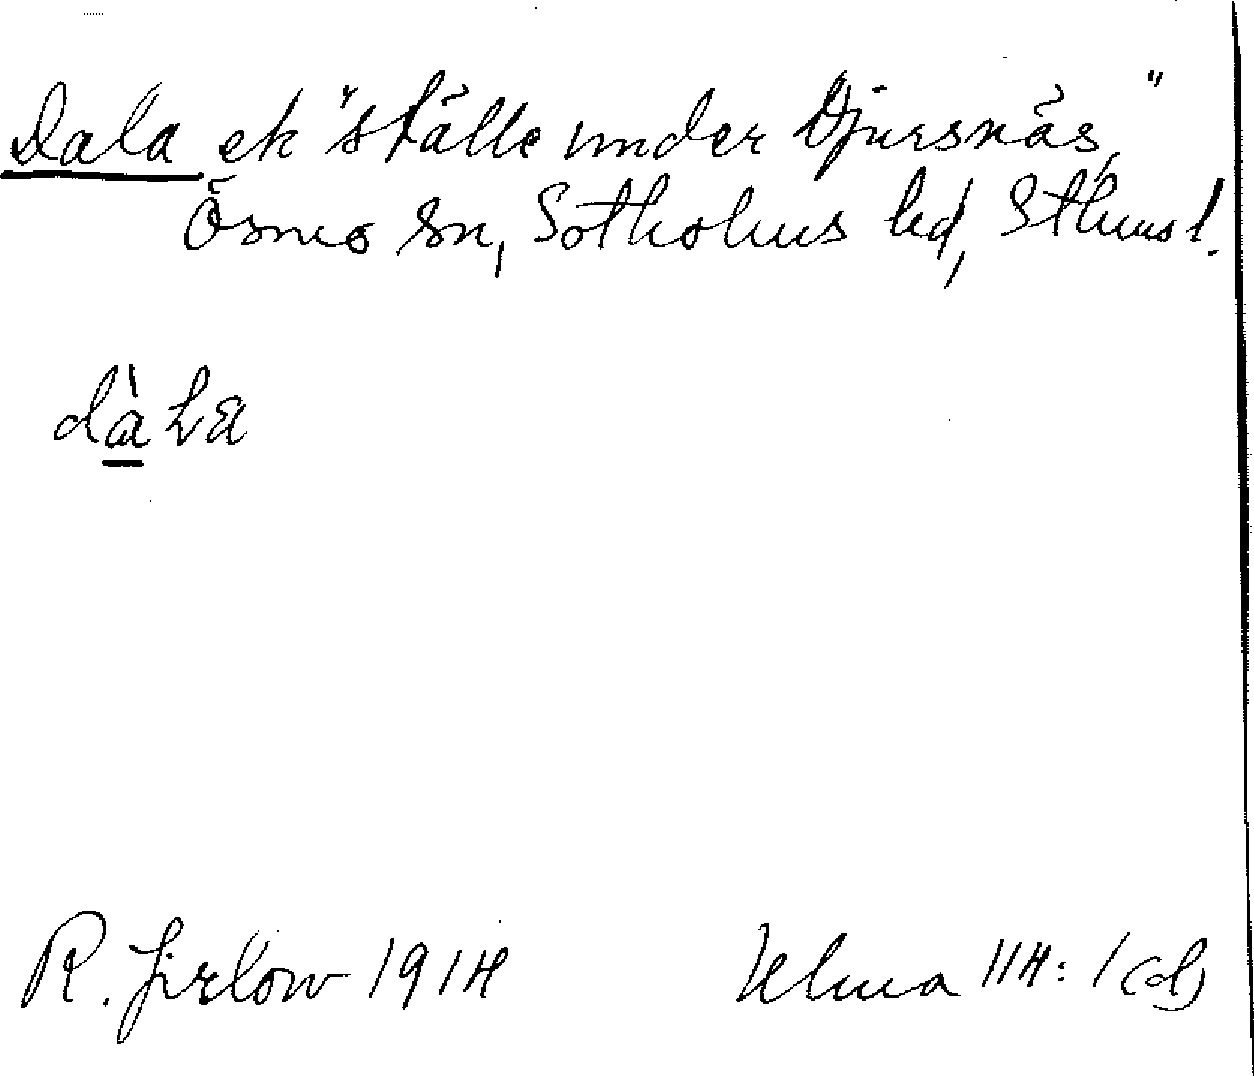 Dala ek "ställe under Djursnäs,"
Ösmo sn, Sotholms hd, Sthms l.
dàLa
R. Jirlow 1914 Ulma 114:1(d)